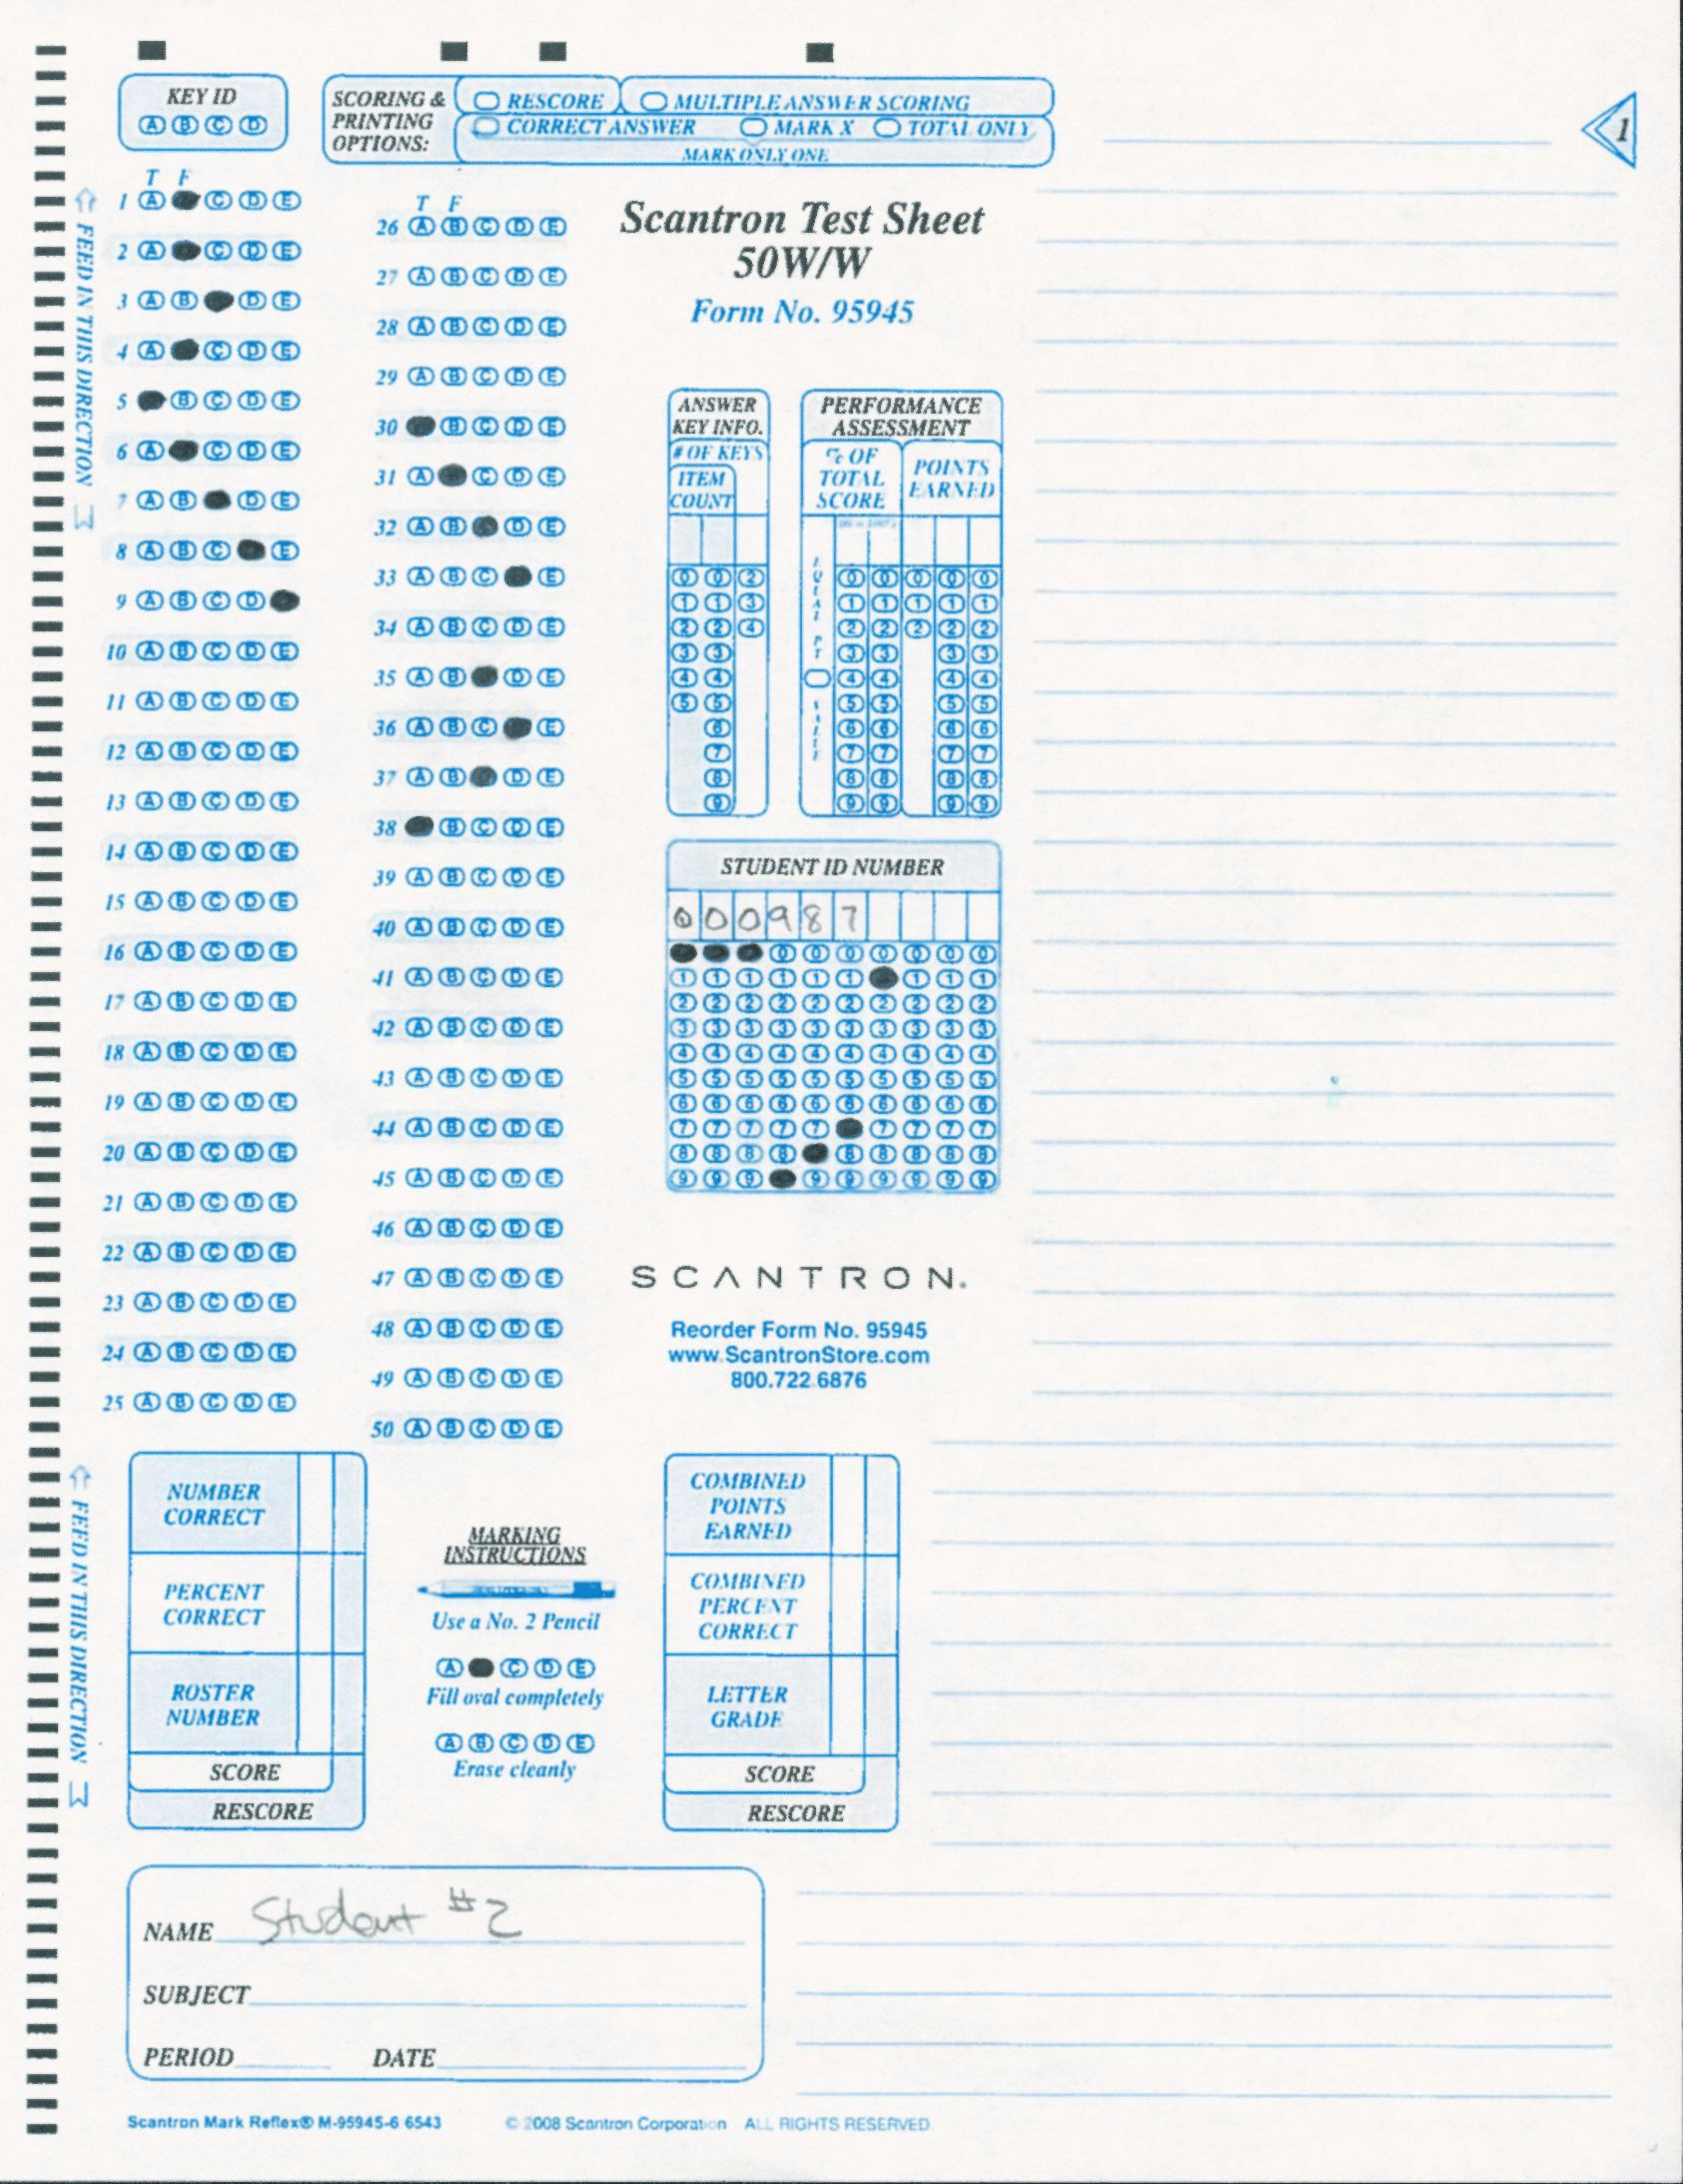 KEY ID
A B C D
SCORING &
PRINTING
OPTIONS:
RESCORE
MULTIPLE ANSWER SCORING
CORRECT ANSWER
MARK X
TOTAL ONLY
MARK ONLY ONE
1
FEED IN THIS DIRECTION
T F
1 A C D E
2 A C D E
3 A B D E
4 A C D E
5 B C D E
6 A C D E
7 A B D E
8 A B C E
9 A B C D
10 A B C D E
11 A B C D E
12 A B C D E
13 A B C D E
14 A B C D E
15 A B C D E
16 A B C D E
17 A B C D E
18 A B C D E
19 A B C D E
20 A B C D E
21 A B C D E
22 A B C D E
23 A B C D E
24 A B C D E
25 A B C D E
T F
26 A B C D E
27 A B C D E
28 A B C D E
29 A B C D E
30 B C D E
31 A C D E
32 A B D E
33 A B C E
34 A B C D E
35 A B D E
36 A B C E
37 A B D E
38 B C D E
39 A B C D E
40 A B C D E
41 A B C D E
42 A B C D E
43 A B C D E
44 A B C D E
45 A B C D E
46 A B C D E
47 A B C D E
48 A B C D E
49 A B C D E
50 A B C D E
Scantron Test Sheet
50W/W
Form No. 95945
ANSWER
KEY INFO.
# OF KEYS
ITEM
COUNT
0 0 2
1 1 3
2 2 4
3 3
4 4
5 5
6
7
8
9
PERFORMANCE
ASSESSMENT
% OF
TOTAL
SCORE
POINTS
EARNED
EQUAL PT VALUE
0 0 0 0 0
1 1 1 1 1
2 2 2 2 2
3 3 3 3
4 4 4 4
5 5 5 5
6 6 6 6
7 7 7 7
8 8 8 8
9 9 9 9
STUDENT ID NUMBER
0 0 0 9 8 7
0 0 0 0 0 0 0
1 1 1 1 1 1 1 1 1
2 2 2 2 2 2 2 2 2 2
3 3 3 3 3 3 3 3 3 3
4 4 4 4 4 4 4 4 4 4
5 5 5 5 5 5 5 5 5 5
6 6 6 6 6 6 6 6 6 6
7 7 7 7 7 7 7 7 7
8 8 8 8 8 8 8 8 8
9 9 9 9 9 9 9 9 9
SCANTRON.
Reorder Form No. 95945
www.ScantronStore.com
800.722.6876
FEED IN THIS DIRECTION
NUMBER
CORRECT
PERCENT
CORRECT
ROSTER
NUMBER
SCORE
RESCORE
MARKING
INSTRUCTIONS
Use a No. 2 Pencil
A C D E
Fill oval completely
A B C D E
Erase cleanly
COMBINED
POINTS
EARNED
COMBINED
PERCENT
CORRECT
LETTER
GRADE
SCORE
RESCORE
NAME Student #2
SUBJECT
PERIOD DATE
Scantron Mark Reflex® M-95945-6 6543 © 2008 Scantron Corporation ALL RIGHTS RESERVED